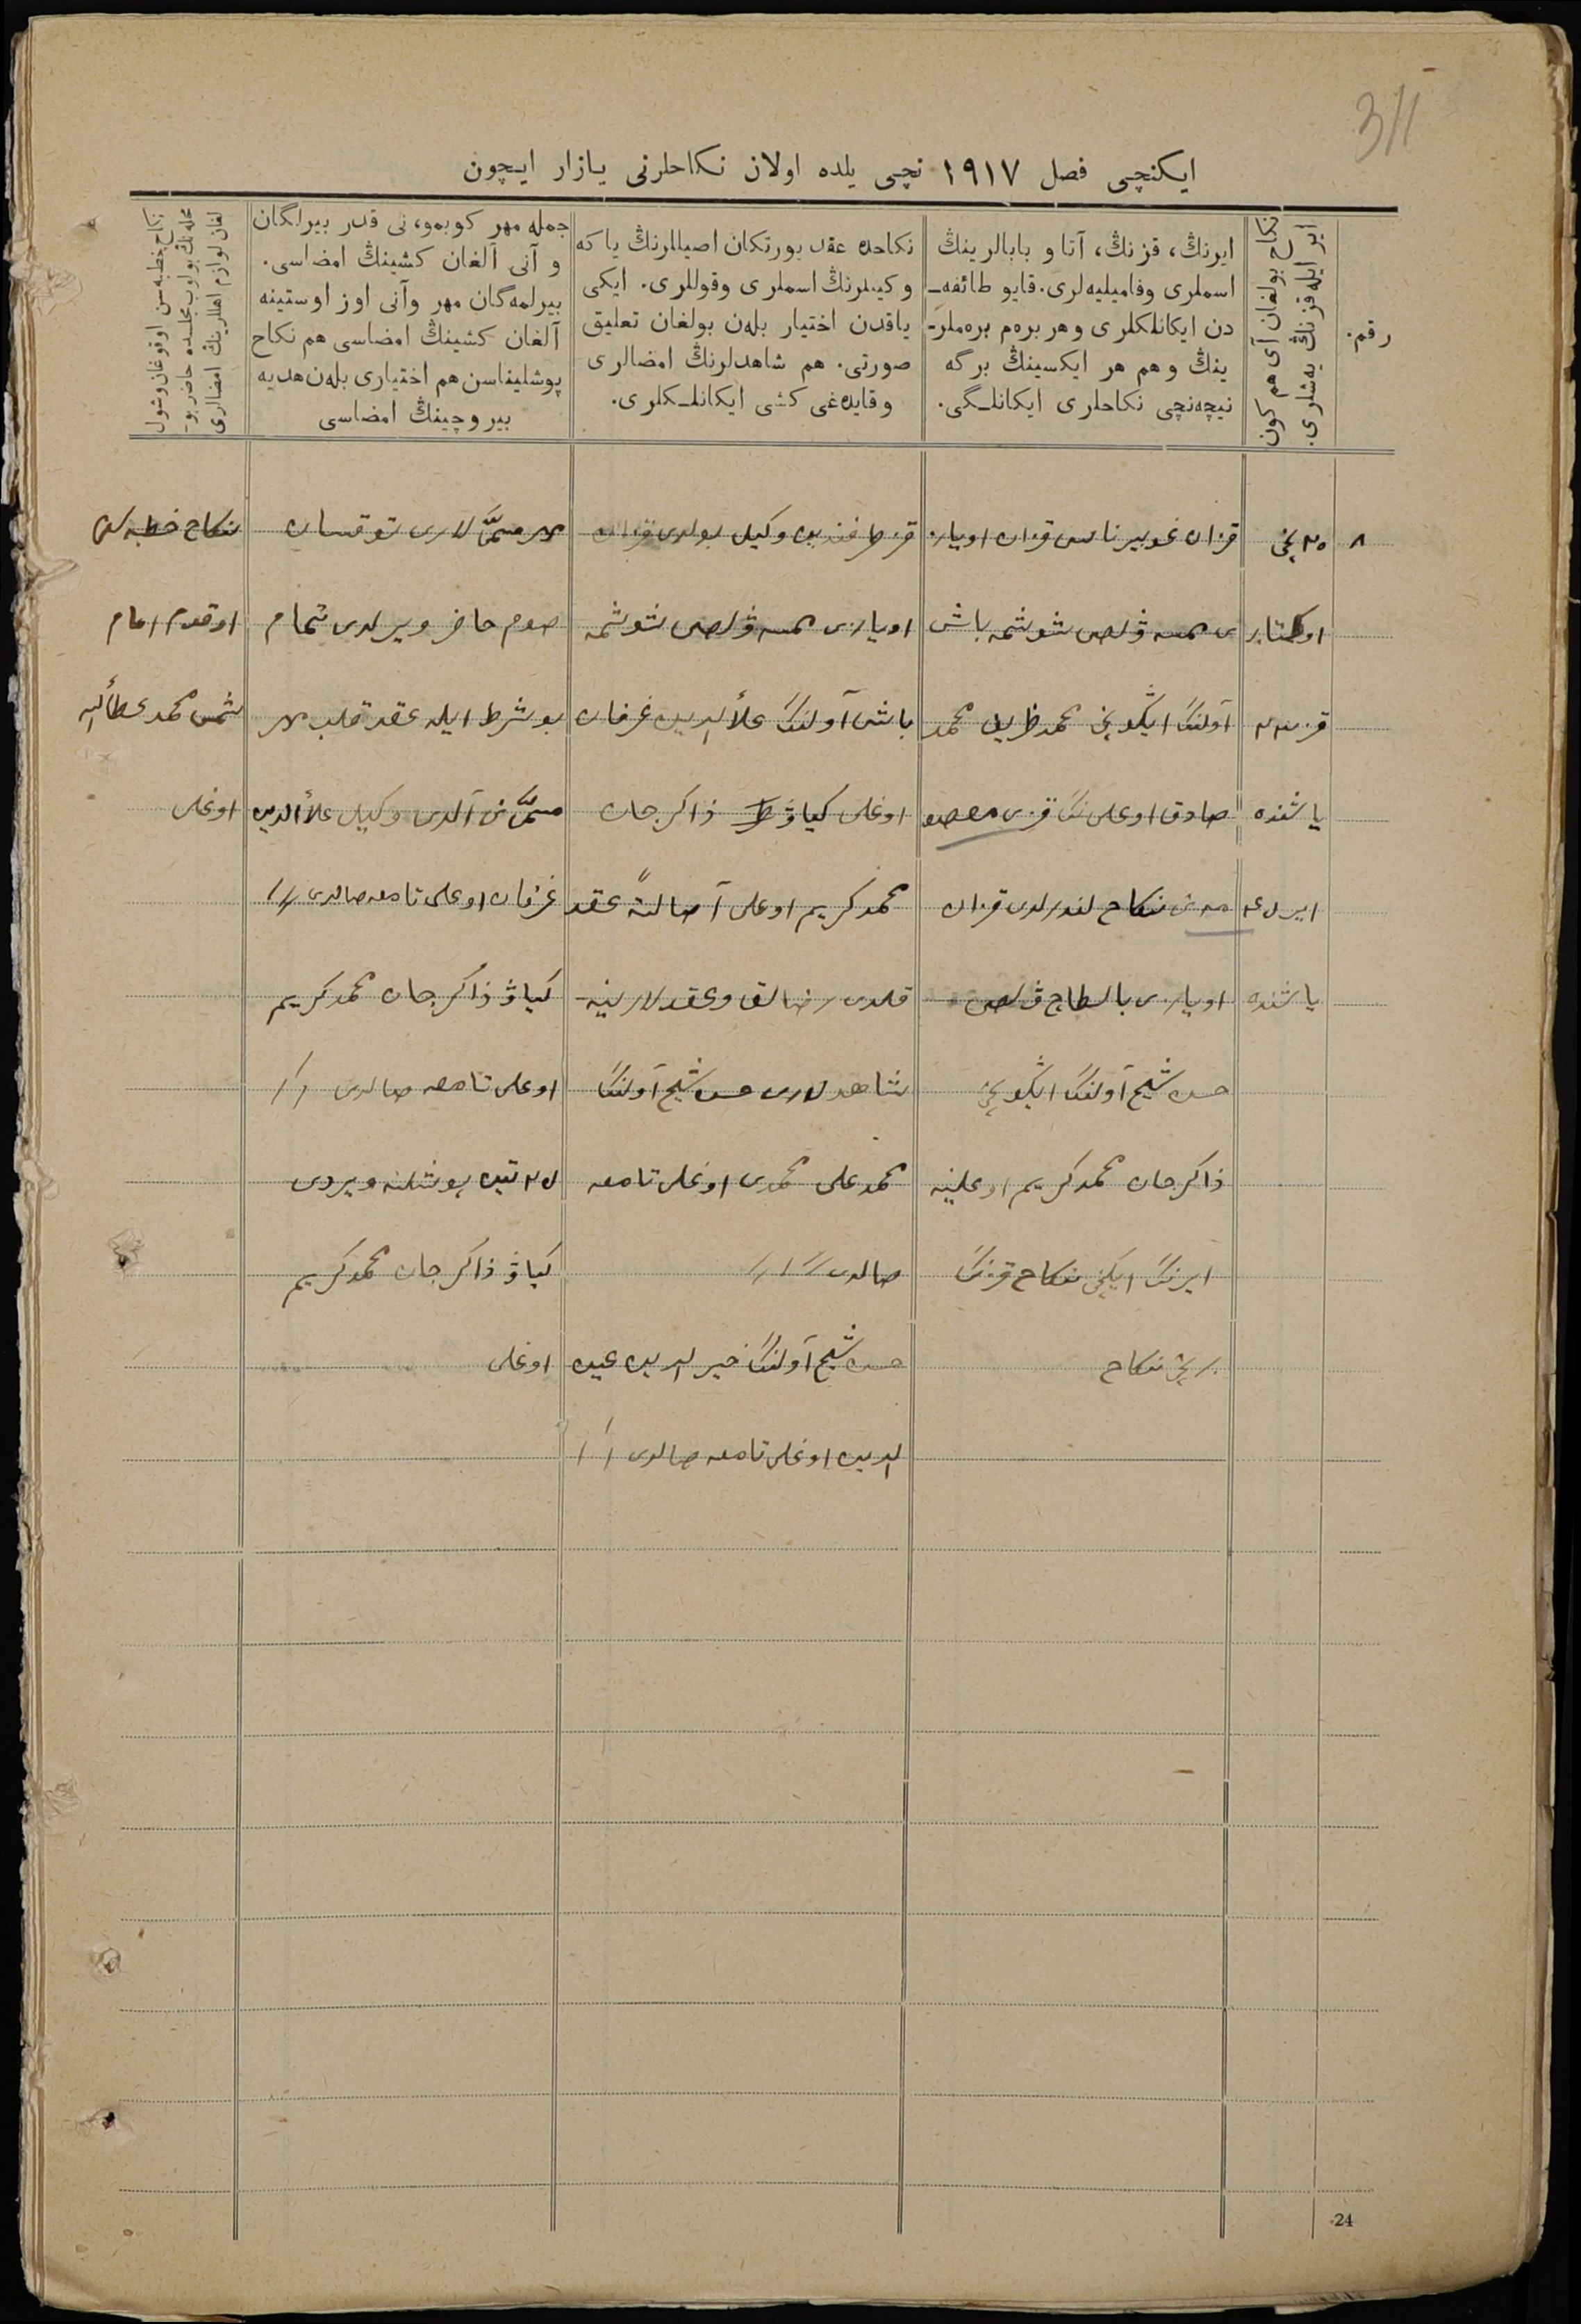 311
ایکنچی فصل ۱۹۱۷ نچی یلده اولان نکاحلرنی یازار ایچون
رقم.
نکاح بولغان آی هم کون
ایر ایله قزنڭ یەشلری.
ایرنڭ، قزنڭ، آتا و بابالرینڭ
اسملری وفامیلیەلری. قایو طائفه‌ـ
دن ایکانلکلری وهر برەم برەملرـ
ینڭ وهم هر ایکسینڭ برگه
نیچەنچی نکاحلری ایکانلـگی.
نکاحده عقد یورتکان اصیللرنڭ یا که
وکیللرنڭ اسملری وقوللری. ایکی
یاقدن اختیار بلەن بولغان تعلیق
صورتی. هم شاهدلرنڭ امضالری
وقایدەغی کشی ایکانلـکلری.
جمله مهر کوبمو، نی قدر بیرلگان
و آنی آلغان کشینڭ امضاسی.
بیرلمەگان مهر وآنی اوز اوستینه
آلغان کشینڭ امضاسی هم نکاح
پوشلیناسن هم اختیاری بلەن هدیه
بیروچینڭ امضاسی
نکاح خطبەسن اوقوغان وشول
محلەنڭ بولوب مجلسده حاضر بوـ
لغان لوازم اهللرینڭ امضالری
۸
۲۵ نچی
اوکتابر
قز ۲۳
یاشنده
ایر ۴۵
یاشنده
قزان غوبیرناس قزان اویاز
ی شوشمه باش
آولنڭ ایڭونچی محمد ظریف محمد
صادق اوغلی نڭ قزی معصو
مه نی نکاح لندرلدی قزان
اویازی بالطاج ڤلصی
حسن شیخ آولنڭ ایڭونچی
ذاکرجان محمدکریم اوغلینه
ایرنڭ ایکنچی نکاح قزنڭ
برنچی نکاح
قز طرفندین وکیل بولدی قزان
اویازی ڤلصی شوشمه
باش آولنڭ علأالدین غرفان
اوغلی کیاۋ ذاکرجان
محمدکریم اوغلی آصالتاً عقد
قلدی رضالق وعقدلارینه
شاهدلاری حسن شیخ آولنڭ
محمدعلی محمدی اوغلی تامغه
صالدی
حسن شیخ آولنڭ خیرالدین عین
الدین اوغلی تامغه صالدی
مهر مسمّی لاری توقسان
صوم حاضر ویرلدی تمام
بوشرط ایله عقد قلب مهر
مسمّی نی آلدی وکیل علأالدین
غرفان اوغلی تامغه صالدی
کیاۋ ذاکرجان محمدکریم
اوغلی تامغه صالدی
۲۵ تین پوشلنه ویردی
کیاۋ ذاکرجان محمدکریم
اوغلی
نکاح خطبه سن
اوقدم امام
شمس محمد عطأالله
اوغلی
24